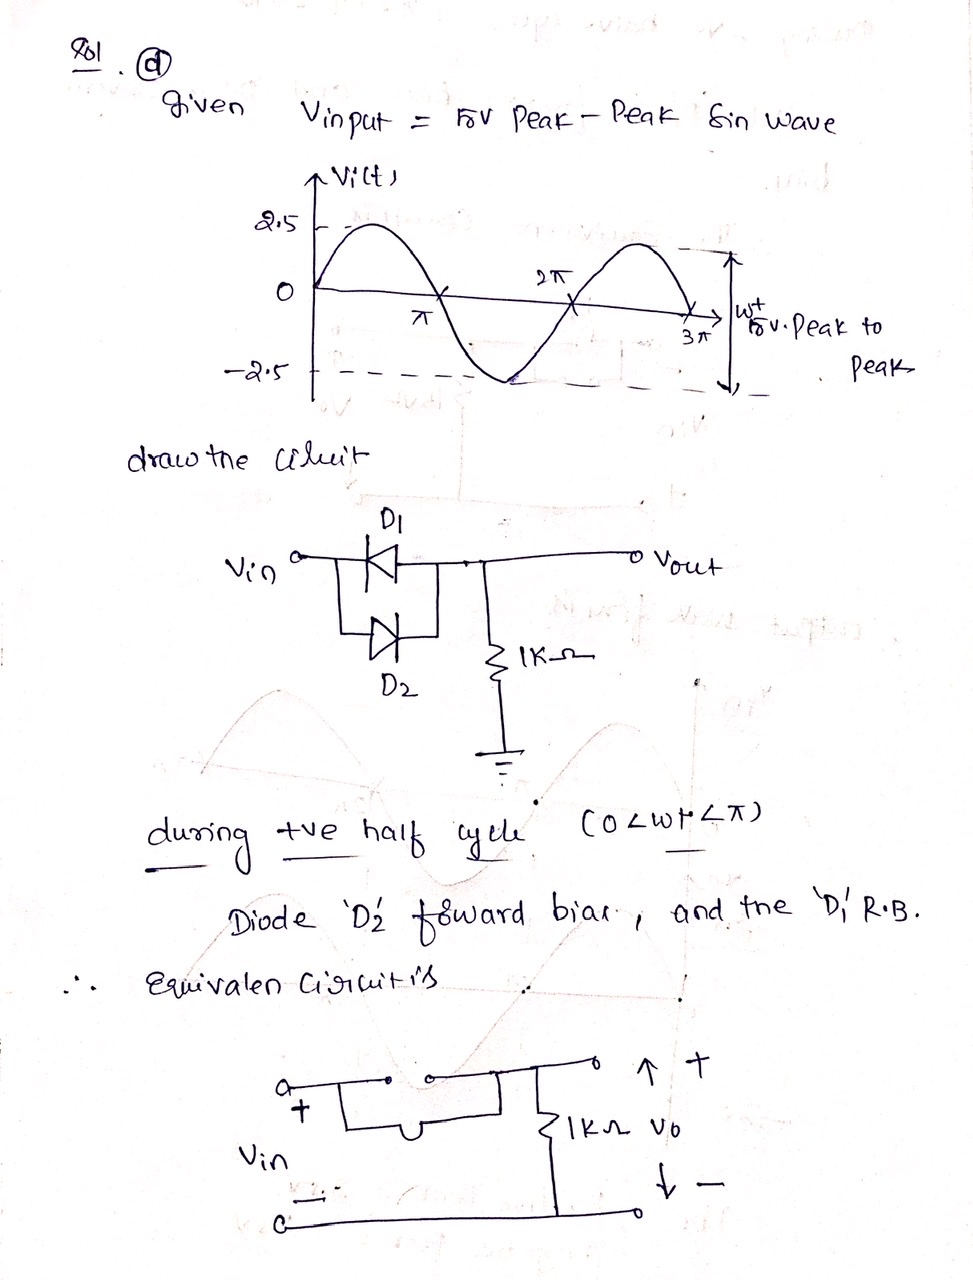 Sol. (d)
given Vinput = 5V Peak - Peak Sin wave
Vi(t)
2.5
0
π
2π
3π
wt
5V. Peak to
Peak
-2.5
draw the
D1
Vin
Vout
D2
1KΩ
during +ve half cycle (0<wt<π)
Diode 'D2' forward bias, and the 'D1' R.B.
∴ Equivalen Circuit is
+
Vin
-
1KΩ
+
Vo
-